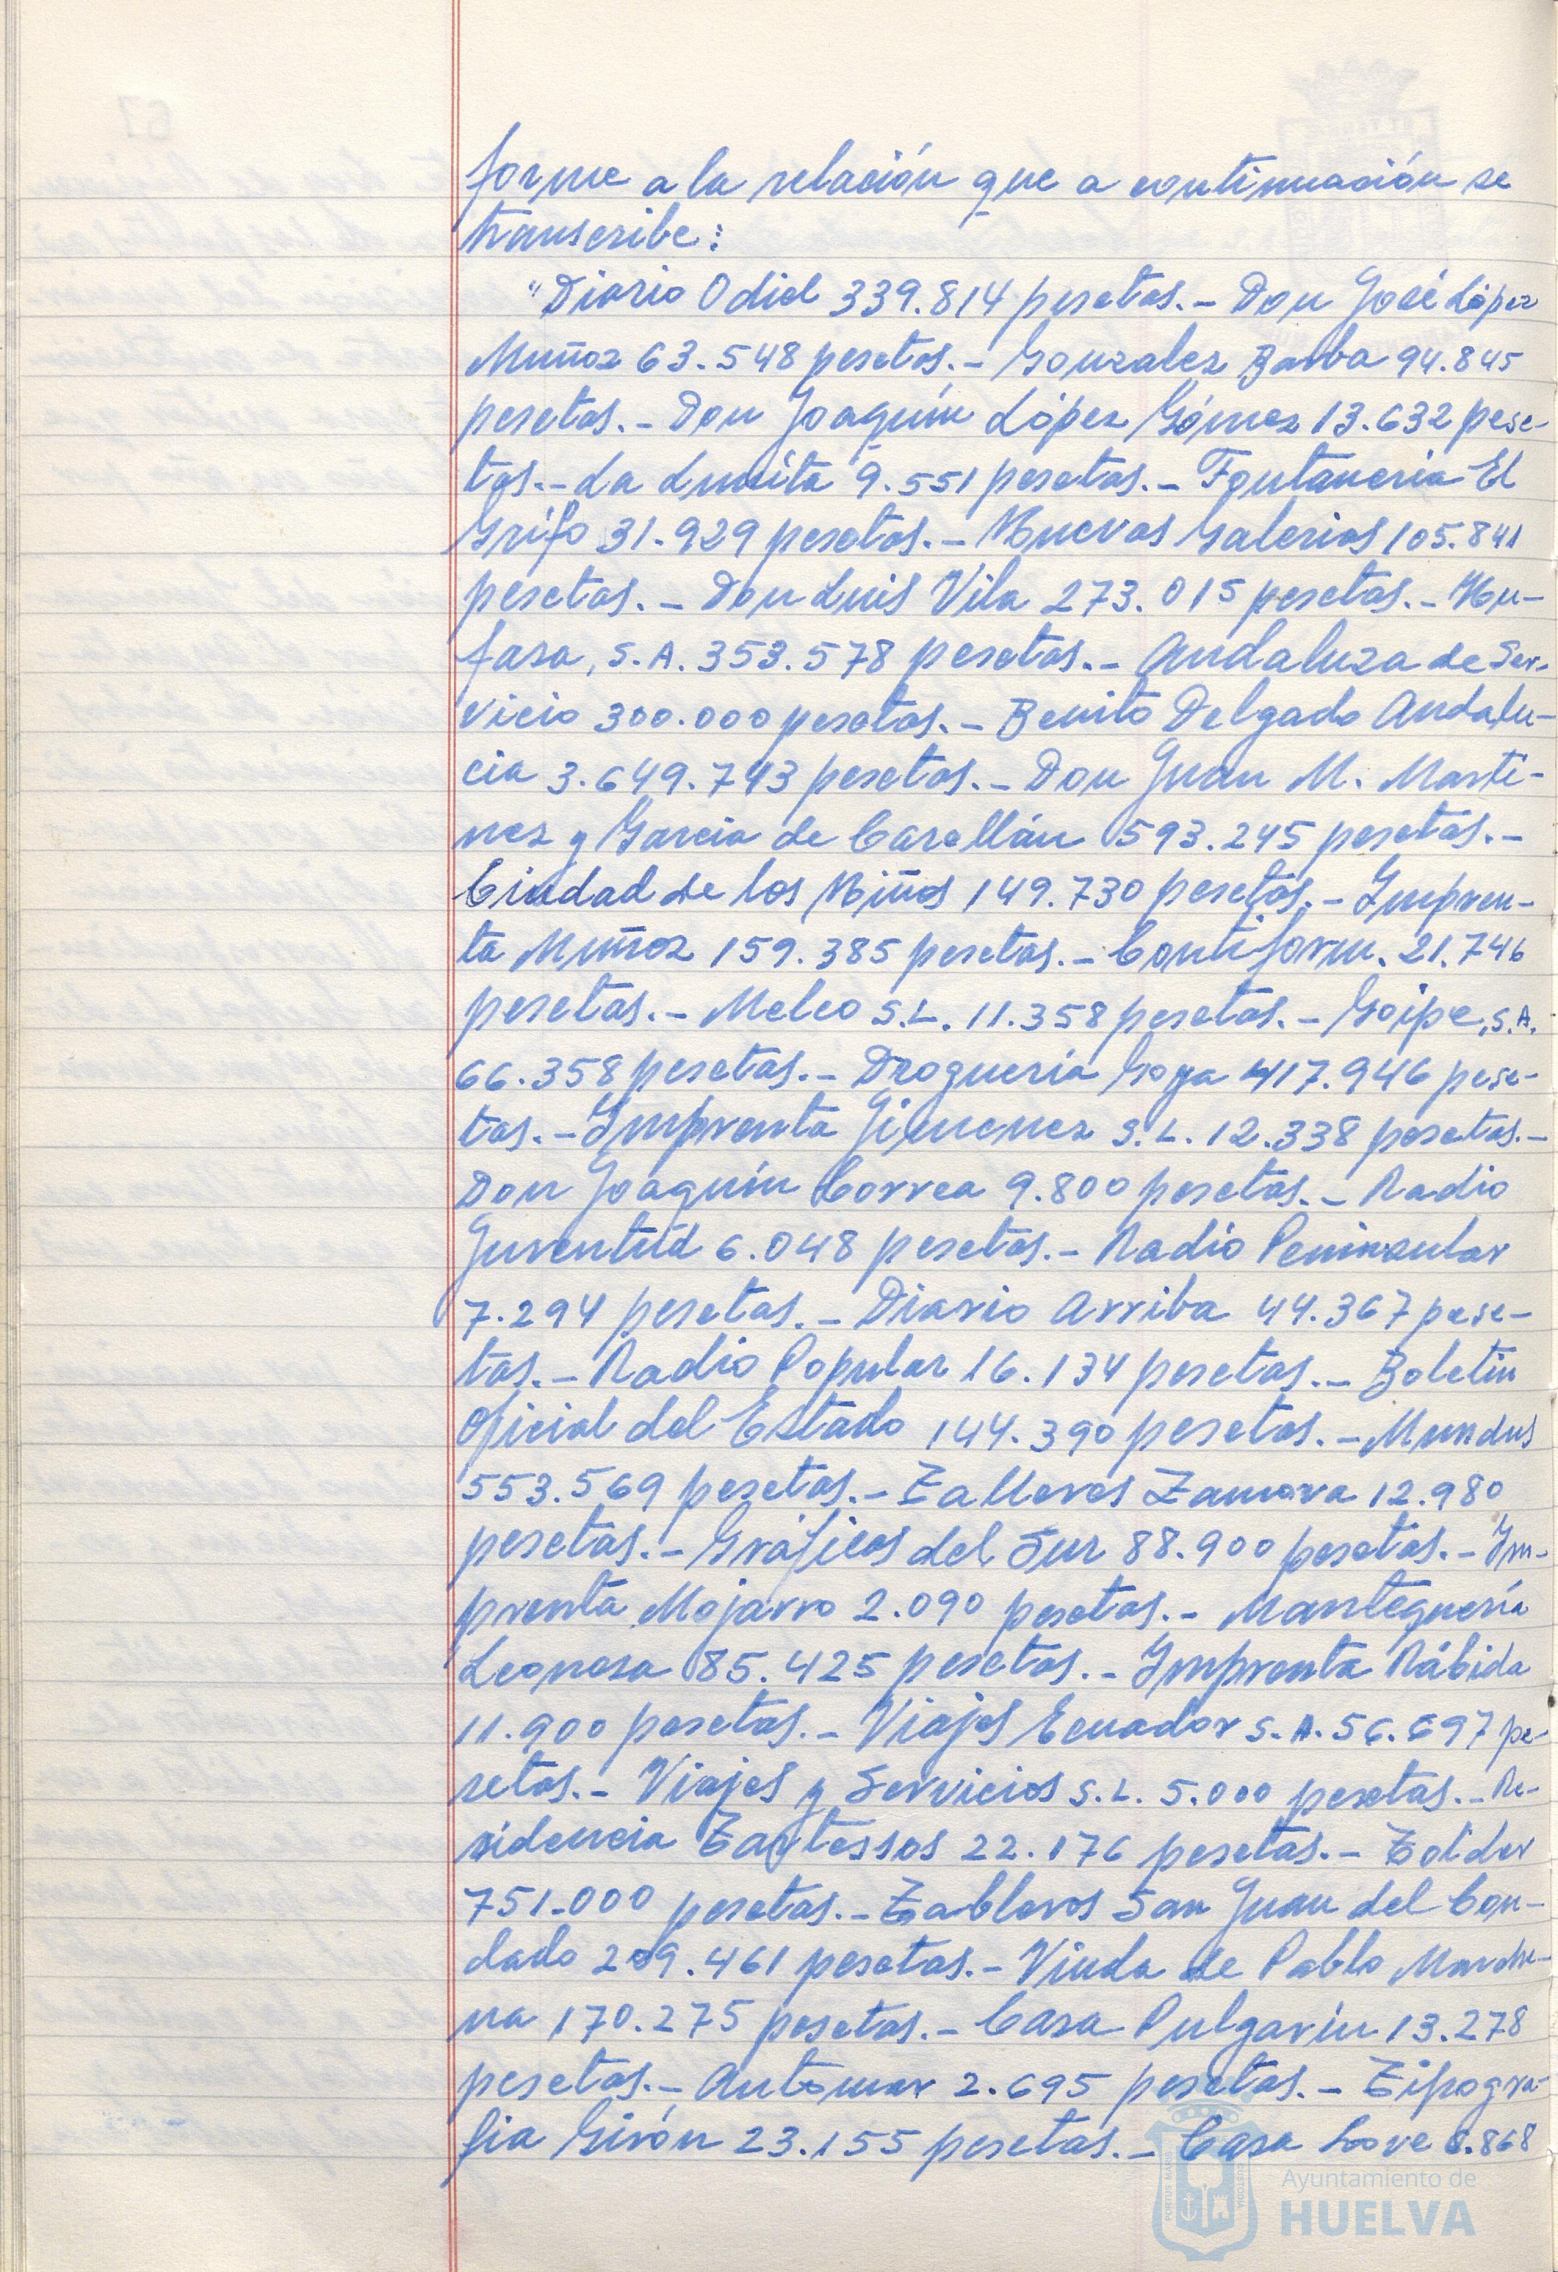 forme a la relación que a continuación se
transcribe:
"Diario Odiel 339.814 pesetas.- Don José López
Muñoz 63.548 pesetas.- Gonzalez Barba 94.845
pesetas.- Don Joaquín López Gómez 13.632 pese-
tas.- La Lucita 9.551 pesetas.- Fontaneria El
Grifo 31.929 pesetas.- Nuevas Galerias 105.841
pesetas.- Don Luis Vila 273.015 pesetas.- Hu-
fasa, S.A. 353.578 pesetas.- Andaluza de Ser-
vicio 300.000 pesetas.- Benito Delgado Andalu-
cia 3.649.743 pesetas.- Don Juan M. Marti-
nez y Garcia de Carellán 593.245 pesetas.-
Ciudad de los Niños 149.730 pesetas.- Impren-
ta Muñoz 159.385 pesetas.- Contiform. 21.746
pesetas.- Melco S.L. 11.358 pesetas.- Goipe, S.A.
66.358 pesetas.- Droguería Goya 417.946 pese-
tas.- Imprenta Jimenez S.L. 12.338 pesetas.-
Don Joaquín Correa 9.800 pesetas.- Radio
Juventud 6.048 pesetas.- Radio Peninsular
7.294 pesetas.- Diario Arriba 44.367 pese-
tas.- Radio Popular 16.134 pesetas.- Boletin
Oficial del Estado 144.390 pesetas.- Mundus
553.569 pesetas.- Talleres Zamora 12.980
pesetas.- Gráficas del Sur 88.900 pesetas.- Im-
prenta Mojarro 2.090 pesetas.- Mantequería
Leonesa 85.425 pesetas.- Imprenta Rábida
11.900 pesetas.- Viajes Ecuador S.A. 56.697 pe-
setas.- Viajes y Servicios S.L. 5.000 pesetas.- Re-
sidencia Tartessos 22.176 pesetas.- Tolder
751.000 pesetas.- Tableros San Juan del Con-
dado 209.461 pesetas.- Viuda de Pablo Marche-
na 170.275 pesetas.- Casa Pulgarín 13.278
pesetas.- Automar 2.695 pesetas.- Tipogra-
fia Girón 23.155 pesetas.- Casa Love 8.868
Ayuntamiento de
HUELVA